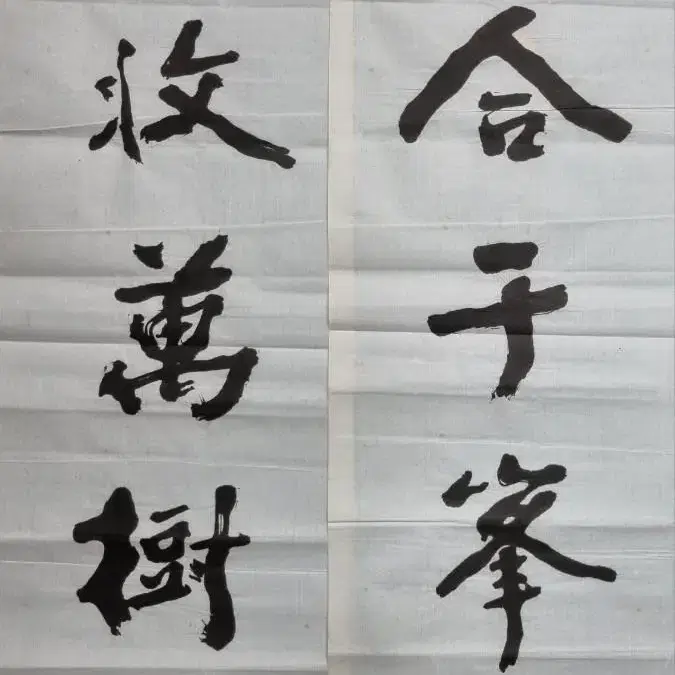 合千峯
收萬樹